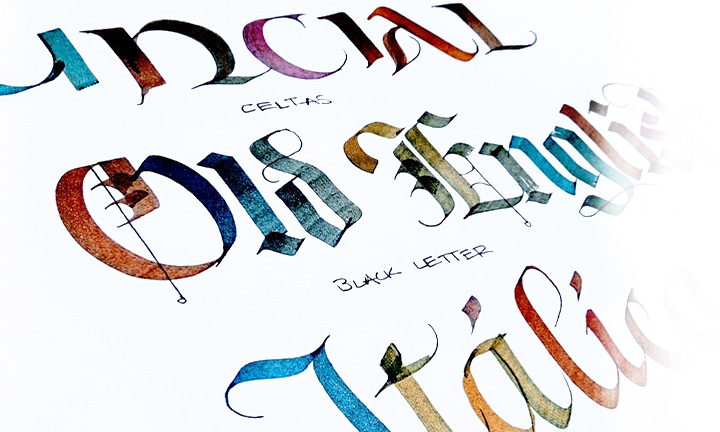 UNCIAL
CELTAS
Old English
BLACK LETTER
Itálic